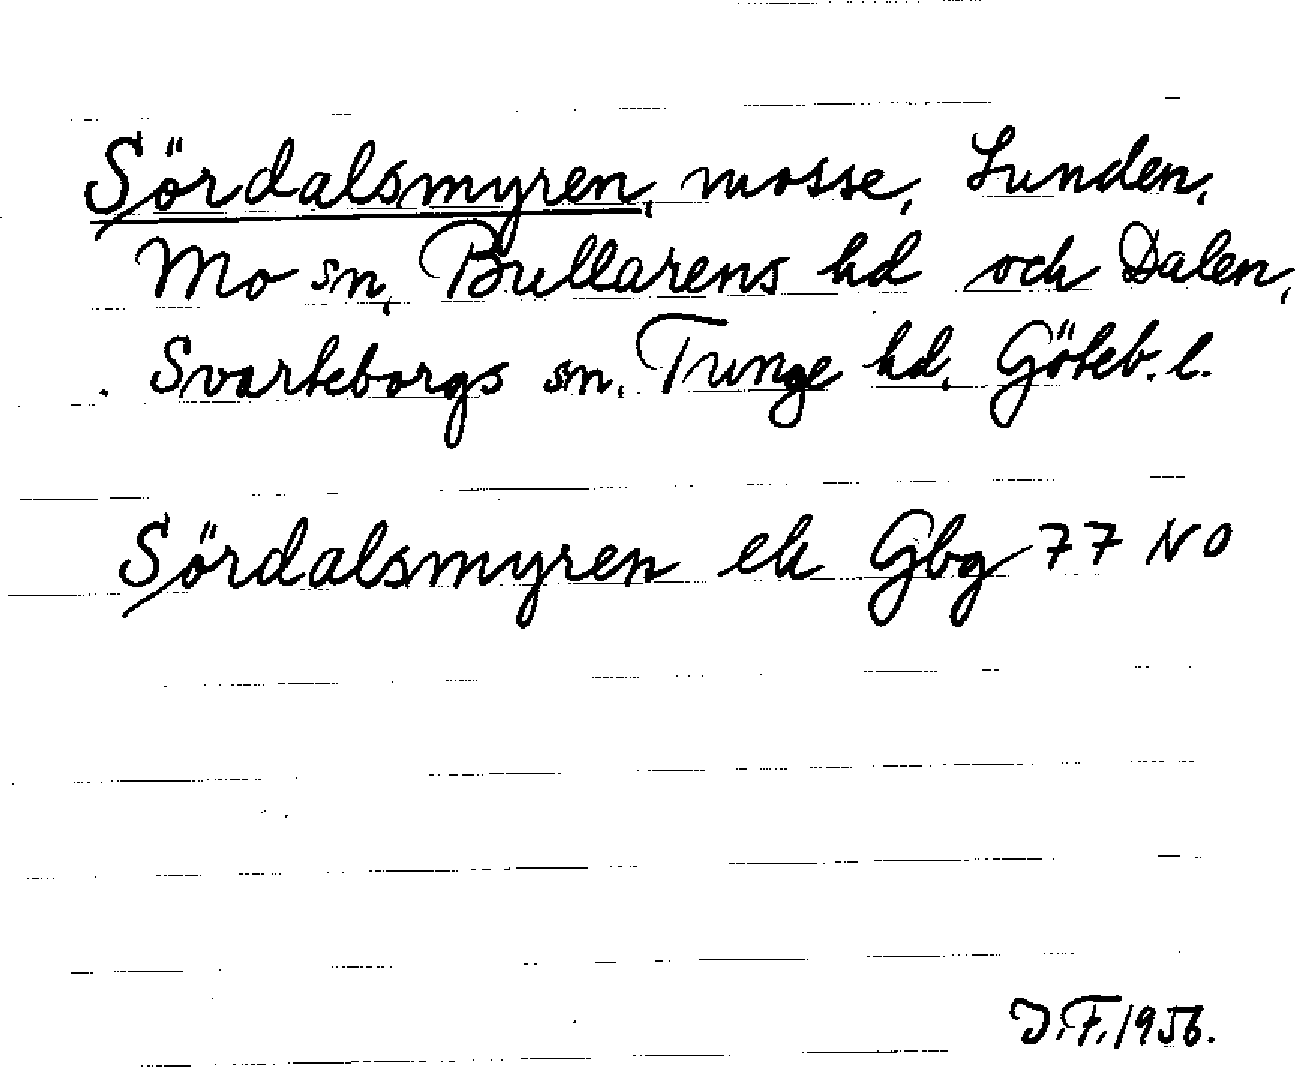 Sördalsmyren, mosse, Lunden,
Mo sn, Bullarens hd och Dalen,
Svarteborgs sn, Tunge hd, Göteb. l.
Sördalsmyren ek Gbg 77 NO
J.F. 1956.